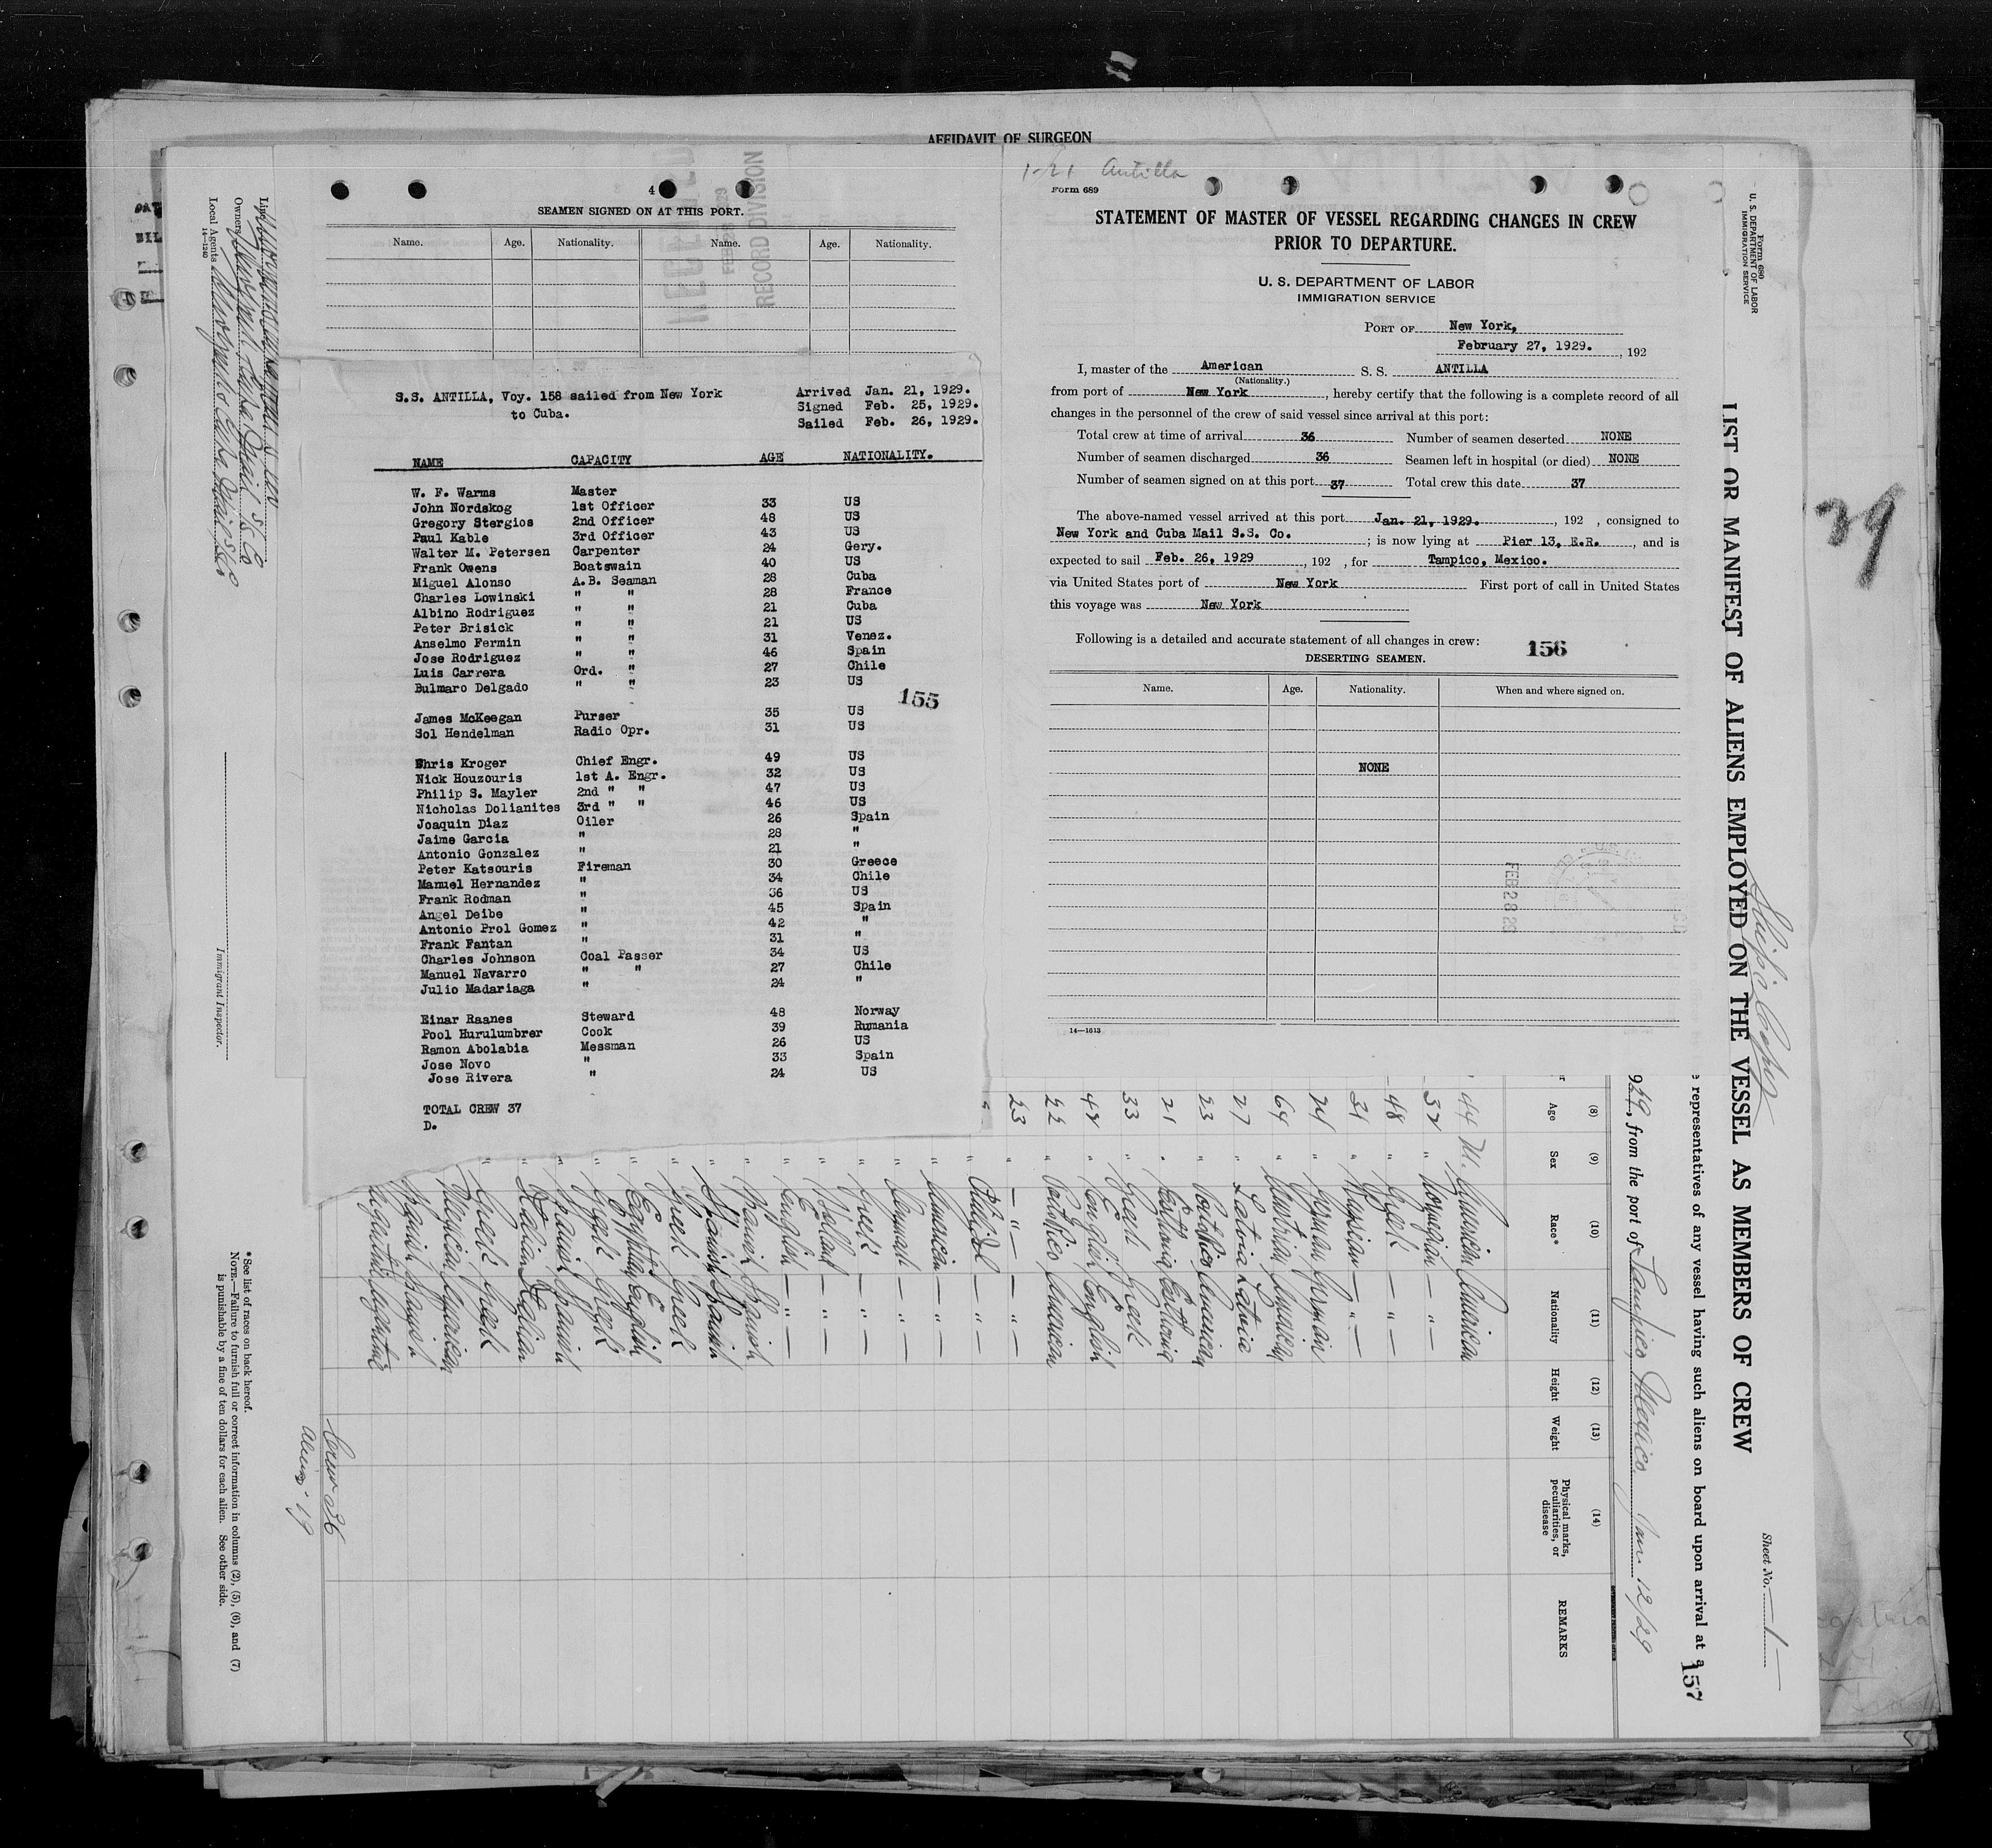 AFFIDAVIT OF SURGEON
4
SEAMEN SIGNED ON AT THIS PORT.
Name. Age. Nationality. Name. Age. Nationality.
RECORD DIVISION
S.S. ANTILLA, Voy. 158 sailed from New York
to Cuba.
Arrived Jan. 21, 1929.
Signed Feb. 25, 1929.
Sailed Feb. 26, 1929.
NAME CAPACITY AGE NATIONALITY.
W. F. Warms Master
John Nordskog 1st Officer 33 US
Gregory Stergios 2nd Officer 48 US
Paul Kable 3rd Officer 43 US
Walter M. Petersen Carpenter 24 Gery.
Frank Owens Boatswain 40 US
Miguel Alonso A.B. Seaman 28 Cuba
Charles Lowinski " " 28 France
Albino Rodriguez " " 21 Cuba
Peter Brisick " " 21 US
Anselmo Fermin " " 31 Venez.
Jose Rodriguez " " 46 Spain
Luis Carrera Ord. " 27 Chile
Bulmaro Delgado " " 23 US
155
James McKeegan Purser 35 US
Sol Hendelman Radio Opr. 31 US
Chris Kroger Chief Engr. 49 US
Nick Houzouris 1st A. Engr. 32 US
Philip S. Mayler 2nd " " 47 US
Nicholas Dolianites 3rd " " 46 US
Joaquin Diaz Oiler 26 Spain
Jaime Garcia " 28 "
Antonio Gonzalez " 21 "
Peter Katsouris Fireman 30 Greece
Manuel Hernandez " 34 Chile
Frank Rodman " 36 US
Angel Deibe " 45 Spain
Antonio Prol Gomez " 42 "
Frank Fantan " 31 "
Charles Johnson Coal Passer 34 US
Manuel Navarro " " 27 Chile
Julio Madariaga " 24 "
Einar Raanes Steward 48 Norway
Pool Hurulumbrer Cook 39 Rumania
Ramon Abolabia Messman 26 US
Jose Novo " 33 Spain
Jose Rivera " 24 US
TOTAL CREW 37
D.
1-21 Antilla
Form 689
STATEMENT OF MASTER OF VESSEL REGARDING CHANGES IN CREW
PRIOR TO DEPARTURE.
U. S. DEPARTMENT OF LABOR
IMMIGRATION SERVICE
PORT OF New York,
February 27, 1929. , 192
I, master of the American S. S. ANTILLA
(Nationality.)
from port of New York , hereby certify that the following is a complete record of all
changes in the personnel of the crew of said vessel since arrival at this port:
Total crew at time of arrival 36 Number of seamen deserted NONE
Number of seamen discharged 36 Seamen left in hospital (or died) NONE
Number of seamen signed on at this port 37 Total crew this date 37
The above-named vessel arrived at this port Jan. 21, 1929. , 192 , consigned to
New York and Cuba Mail S.S. Co. ; is now lying at Pier 13, E.R. , and is
expected to sail Feb. 26, 1929 , 192 , for Tampico, Mexico.
via United States port of New York First port of call in United States
this voyage was New York
Following is a detailed and accurate statement of all changes in crew:
156
DESERTING SEAMEN.
Name. Age. Nationality. When and where signed on.
NONE
FEB 28 29
14—1613
Form 680
U. S. DEPARTMENT OF LABOR
IMMIGRATION SERVICE
39
LIST OR MANIFEST OF ALIENS EMPLOYED ON THE VESSEL AS MEMBERS OF CREW
Ship's Copy
Sheet No. 1
representatives of any vessel having such aliens on board upon arrival at a
157
29, from the port of Tampico, Mexico Jan. 12/29
(8) (9) (10) (11) (12) (13) (14)
Age Sex Race* Nationality Height Weight Physical marks, peculiarities, or disease REMARKS
44 M. American American
37 " Norwegian — " —
48 " Greek — " —
31 " Russian — " —
24 " German German
64 " Austrian American
27 " Latvia Latvia
23 " Porto Rico American
33 " Greek Greek
48 " English English
22 " Porto Rico American
23 " — " — — " —
Crew 36
Aliens 19
*See list of races on back hereof.
NOTE.—Failure to furnish full or correct information in columns (2), (5), (6), and (7)
is punishable by a fine of ten dollars for each alien. See other side.
Immigrant Inspector.
Owners
Local Agents
14—1240